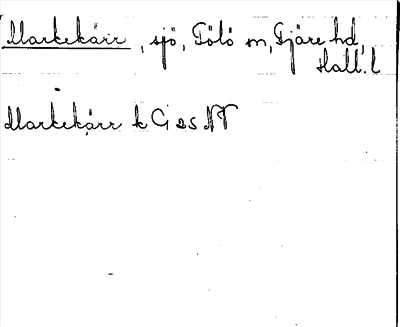 Markekärr, sjö, Tölö sn, Fjäre hd,
Hall. l
Markekärr k Gi 25 NV